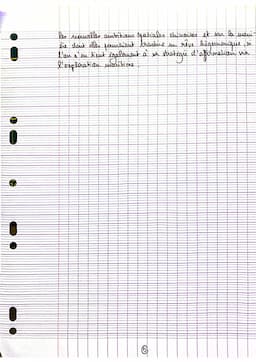 les nouvelles ambitions spatiales chinoises et sur la mani-
ère dont elles pourraient traduire un rêve hégémonique, si
l'on s'en tient également à sa stratégie d'affirmation via
l'exploration maritime.